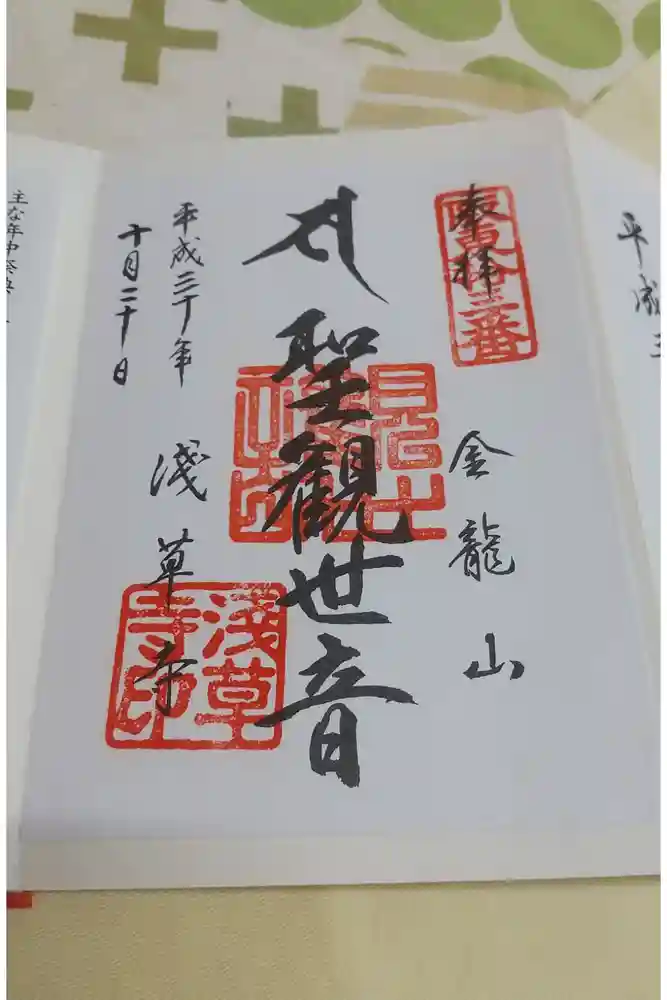 平成三
奉拝
坂東拾三番
金龍山
聖観世音
平成三十年
十月二十日
淺草寺
淺草寺印
主な年中祭典